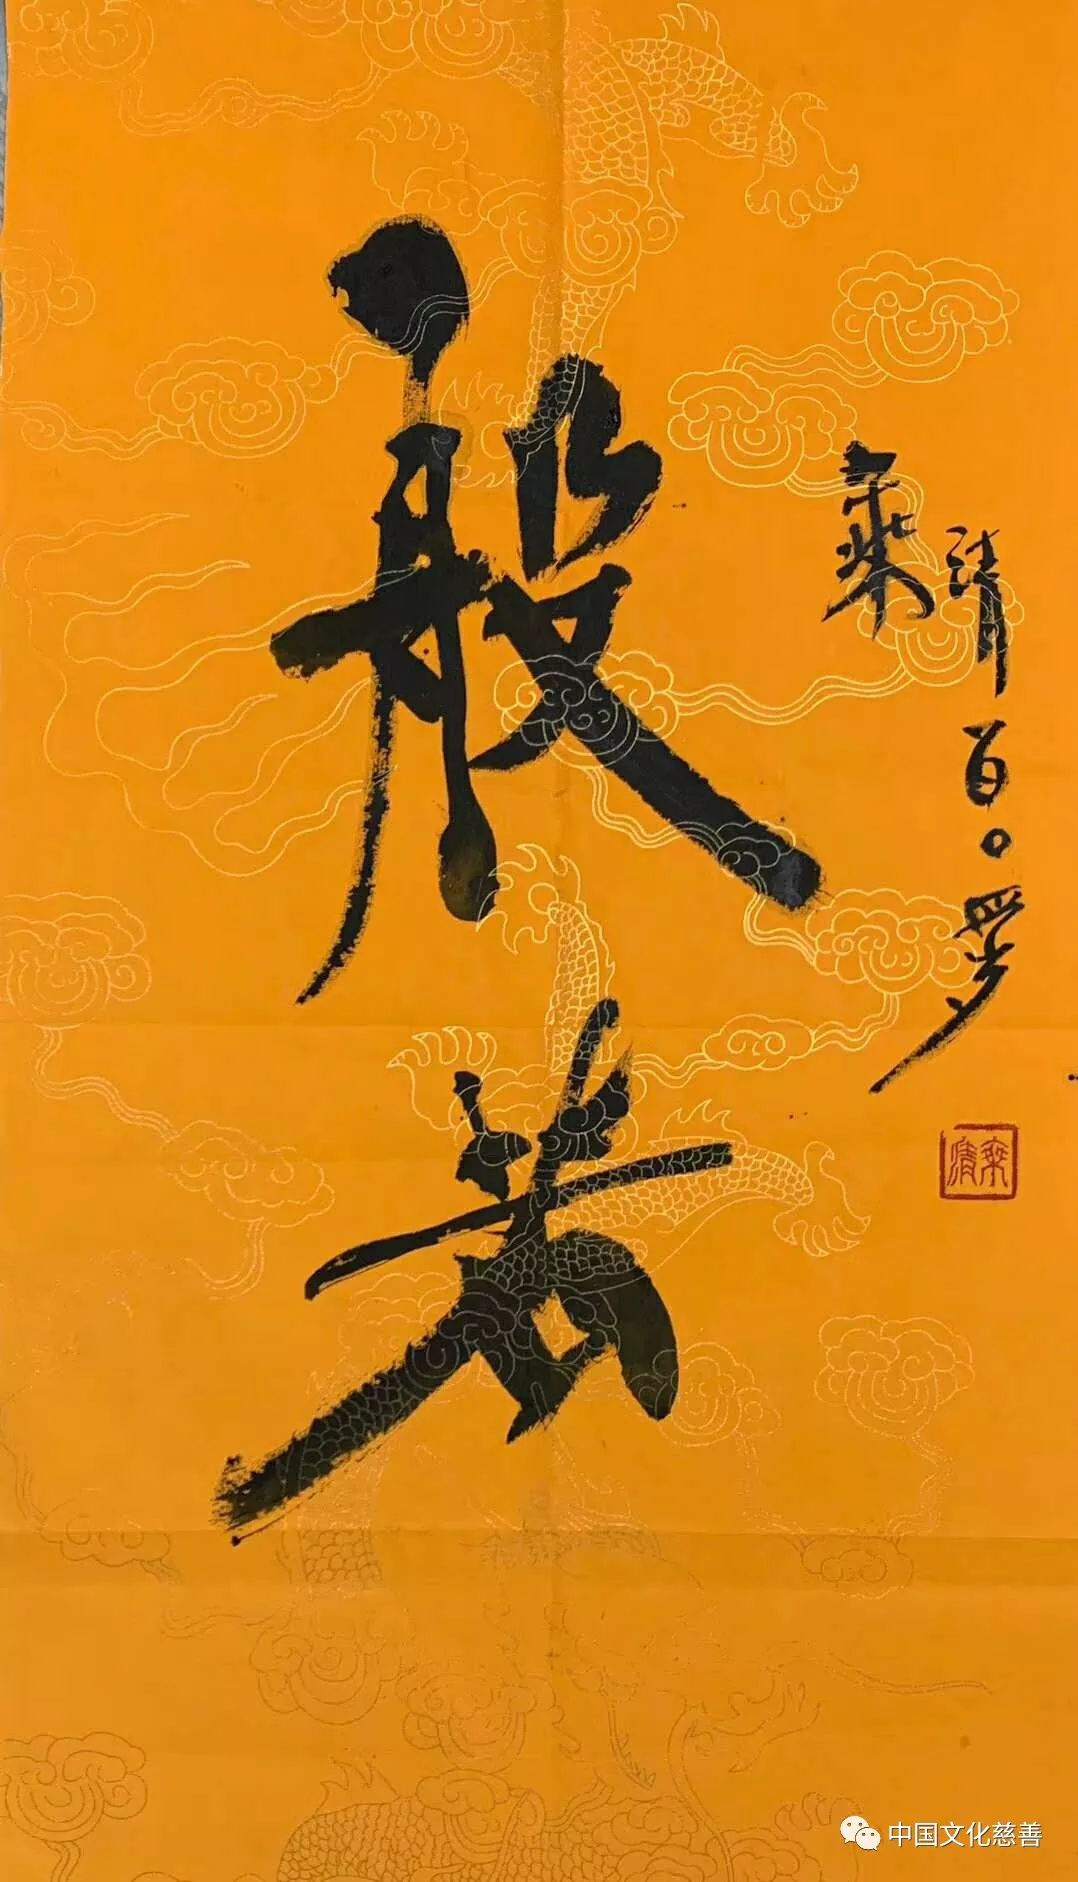 般若
乘清
百〇四岁
乘清
中国文化慈善